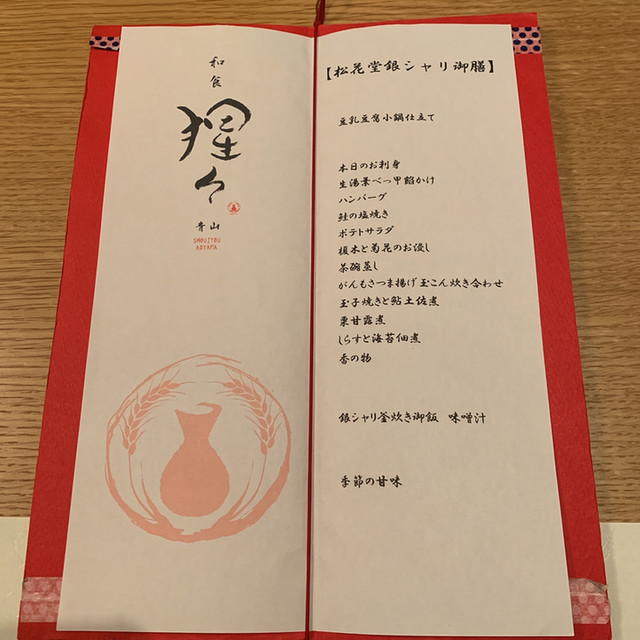 和食
猩々
青山
SHOUJYOU
AOYAMA
【松花堂銀シャリ御膳】
豆乳豆腐小鍋仕立て
本日のお刺身
生湯葉べっ甲餡かけ
ハンバーグ
鮭の塩焼き
ポテトサラダ
榎木と菊花のお浸し
茶碗蒸し
がんもさつま揚げ玉こん炊き合わせ
玉子焼きと鮎土佐煮
栗甘露煮
しらすと海苔佃煮
香の物
銀シャリ釜炊き御飯 味噌汁
季節の甘味